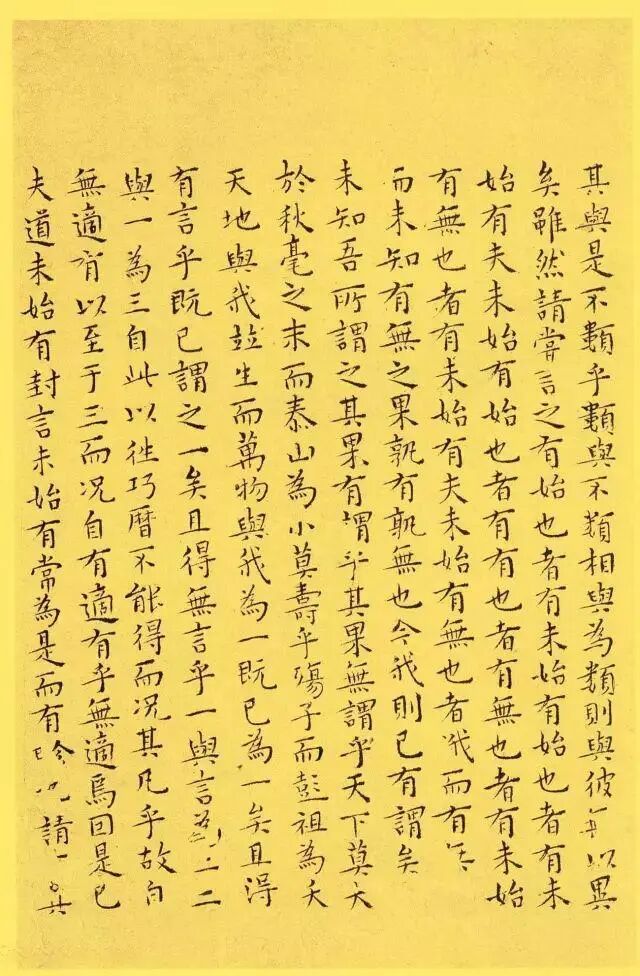 其與是不類乎類與不類相與為類則與彼以異
矣雖然請嘗言之有始也者有未始有始也者有未
始有夫未始有始也者有有也者有無也者有未始
有無也者有未始有夫未始有無也者俄而有
而未知有無之果孰有孰無也今我則已有謂矣
未知吾所謂之其果有謂乎其果無謂乎天下莫大
於秋毫之末而泰山為小莫壽乎殤子而彭祖為夭
天地與我並生而萬物與我為一既已為一矣且得
有言乎既已謂之一矣且得無言乎一與言為二二
與一為三自此以往巧曆不能得而况其凡乎故自
無適有以至于三而况自有適有乎無適焉因是已
夫道未始有封言未始有常為是而有畛也請其